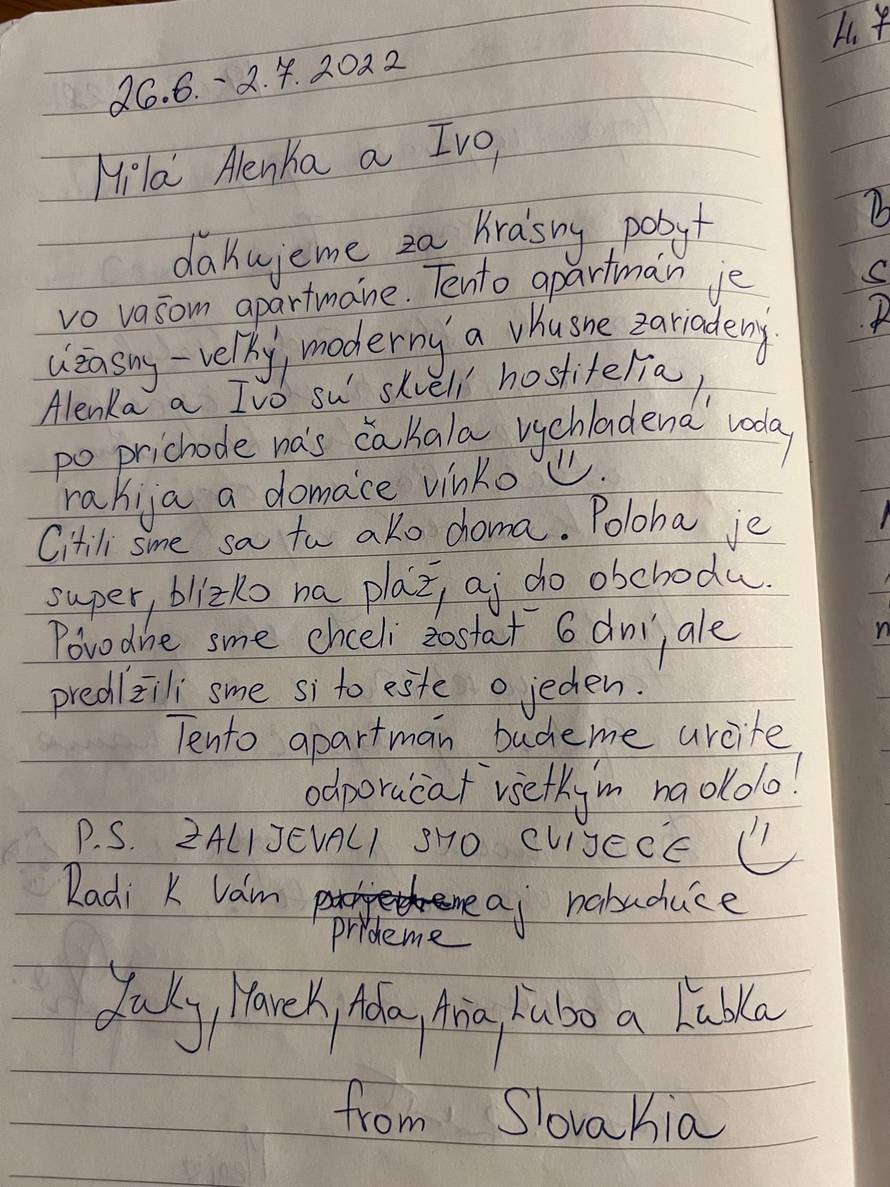 26.6. - 2.7. 2022
Milá Alenka a Ivo,
ďakujeme za krásny pobyt
vo vašom apartmáne. Tento apartmán je
úžasny - veľký, moderný a vkusne zariadený.
Alenka a Ivo sú skvelí hostitelia,
po príchode nás čakala vychladená voda,
rakija a domáce vínko
Cítili sme sa tu ako doma. Poloha je
super, blízko na pláž, aj do obchodu.
Pôvodne sme chceli zostať 6 dní, ale
predĺžili sme si to ešte o jeden.
Tento apartmán budeme určite
odporúčať všetkým na okolo!
P.S. ZALIJEVALI SMO CVIJEĆE
Radi k Vám aj nabudúce
prídeme
Marek, Aďa, Ľubo a Ľubka
from Slovakia
4. 7